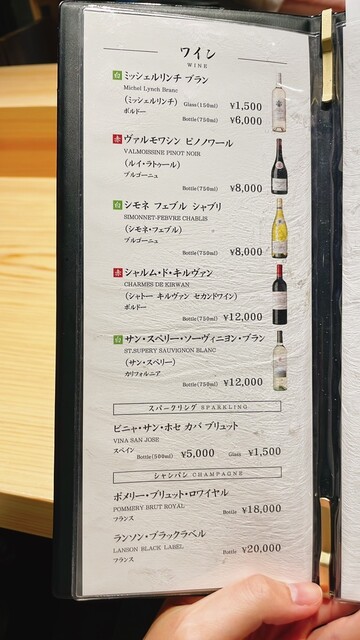 ワイン
WINE
白 ミッシェルリンチ ブラン
Michel Lynch Branc
（ミッシェルリンチ） Glass(150ml) ¥1,500
ボルドー
Bottle(750ml) ¥6,000
赤 ヴァルモワシン ピノノワール
VALMOISSINE PINOT NOIR
（ルイ・ラトゥール）
ブルゴーニュ
Bottle(750ml) ¥8,000
白 シモネ フェブル シャブリ
SIMONNET-FEBVRE CHABLIS
（シモネ・フェブル）
ブルゴーニュ
Bottle(750ml) ¥8,000
赤 シャルム・ド・キルヴァン
CHARMES DE KIRWAN
（シャトー キルヴァン セカンドワイン）
ボルドー
Bottle(750ml) ¥12,000
白 サン・スペリー・ソーヴィニヨン・ブラン
ST.SUPERY SAUVIGNON BLANC
（サン・スペリー）
カリフォルニア
Bottle(750ml) ¥12,000
スパークリング SPARKLING
ビニャ・サン・ホセ カバ ブリュット
VINA SAN JOSE
スペイン Bottle(500ml) ¥5,000 Glass ¥1,500
シャンパン CHAMPAGNE
ポメリー・ブリュット・ロワイヤル
POMMERY BRUT ROYAL
フランス Bottle ¥18,000
ランソン・ブラックラベル
LANSON BLACK LABEL
フランス Bottle ¥20,000